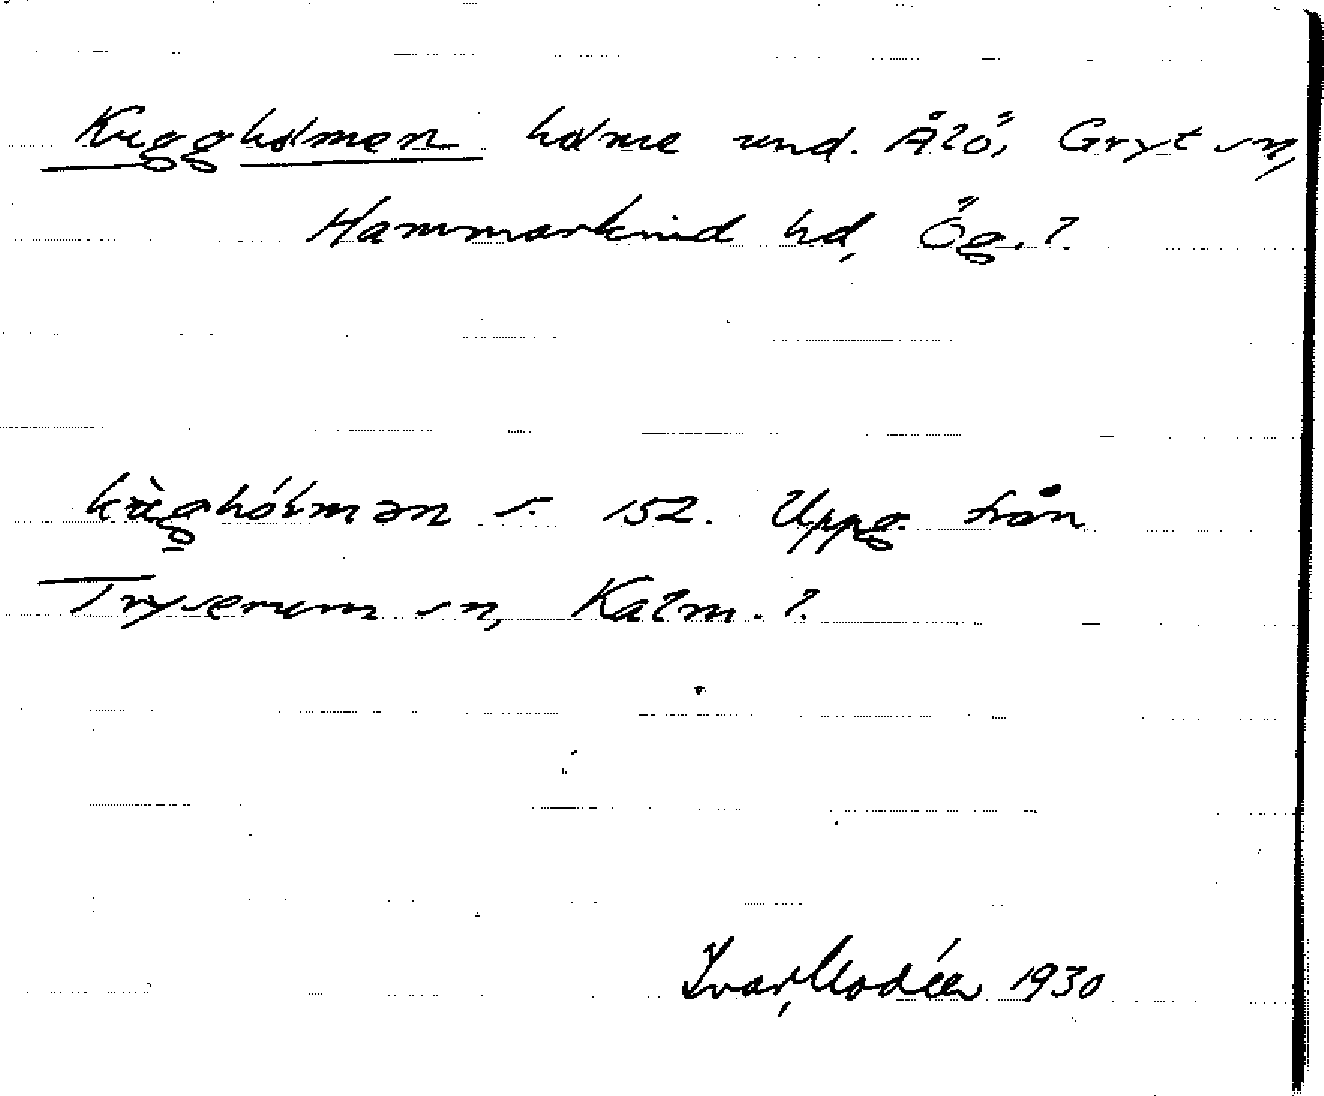 Kuggholmen holme und. Ålö, Gryt sn,
Hammarkind hd, Ög. ?.
kùghólmən s. 152. Uppg. från
Tryserum sn, Kalm. ?.
Ivar Modéer 1930